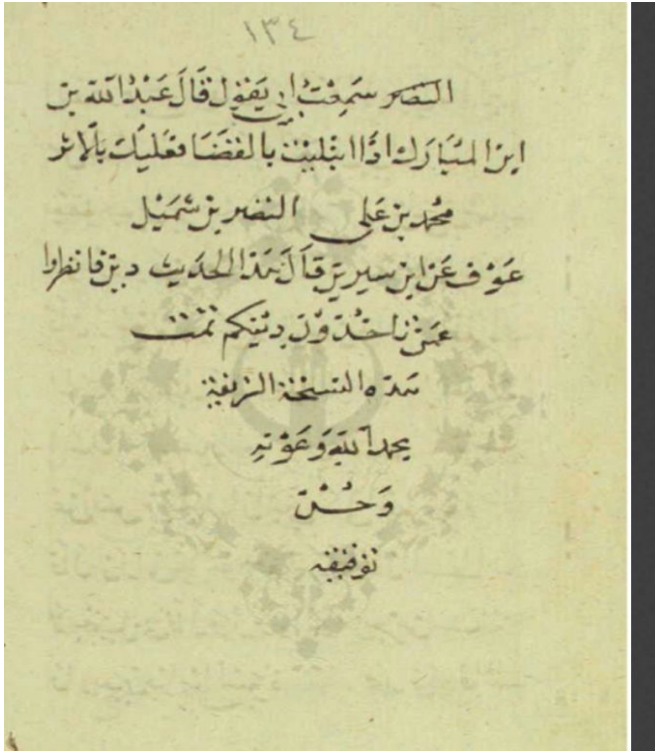 ١٣٤
النضر سمعت أبي يقول قال عبد الله بن
ابن المبارك اذا ابتليت بالقضا فعليك بالاثر
محمد بن علي النضر بن شميل
عوف عن ابن سيرين قال هذا الحديث دين فانظروا
عمن تاخذون دينكم تمت
هذه النسخة الشريفة
بحمد الله وعونه
وحسن
توفيقه